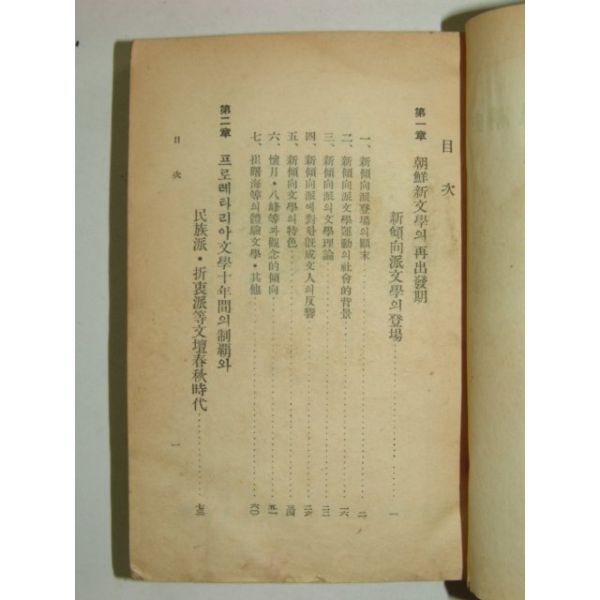 目次
第一章 朝鮮新文學의再出發期
新傾向派文學의登場 一
一、新傾向派登場의顚末 二
二、新傾向派文學運動의社會的背景 一六
三、新傾向派의文學理論 二二
四、新傾向派에對한旣成文人의反響 二六
五、新傾向文學의特色 三四
六、懷月·八峰等과觀念的傾向 五一
七、崔曙海等의體驗文學·其他 六〇
第二章 프로레타리아文學十年間의制覇와
民族派·折衷派等文壇春秋時代 七三
目次
一